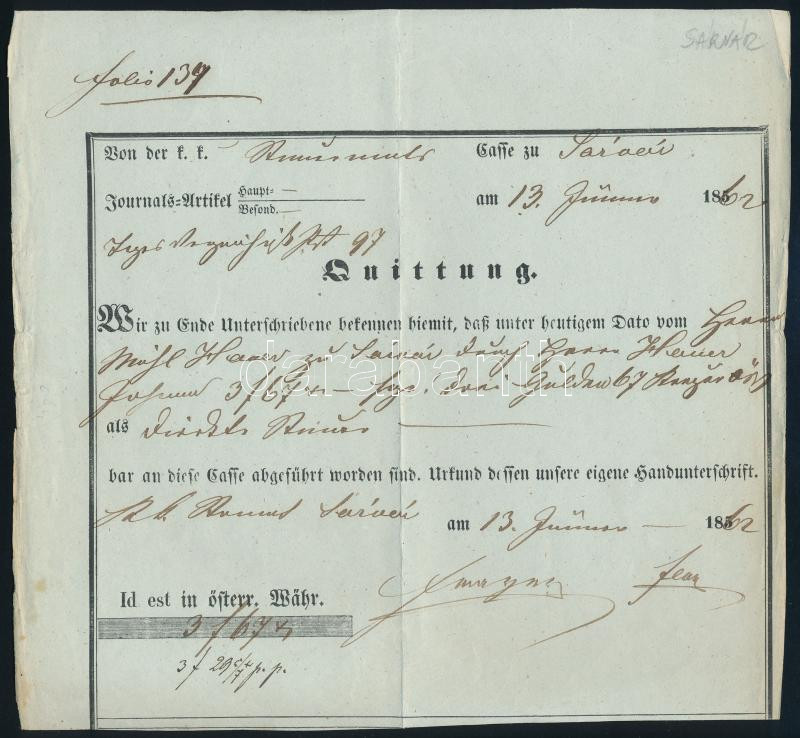 SARVAR
folio 137
Von der k. k. Steueramts Casse zu Sárvár
Journals-Artikel Haupt- — Besond. —
am 13. Jänner 1862
97
Quittung.
Wir zu Ende Unterschriebene bekennen hiemit, daß unter heutigem Dato vom Herrn
zu Sárvár durch Herrn
Johann 3 f 67 x — sage drei Gulden 67 Kreuzer
als Direkte Steuer
bar an diese Casse abgeführt worden sind. Urkund dessen unsere eigene Handunterschrift.
k. k. Steueramt Sárvár am 13. Jänner — 1862
Id est in österr. Währ.
3 f 67 x
3 f 29 p. p.
darabanth